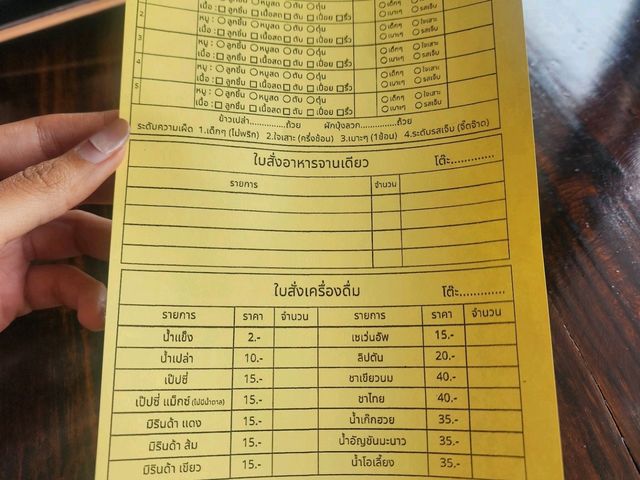 เนื้อ : □ ลูกชิ้น □ เนื้อสด □ ตับ □ เปื่อย □ ริ้ว
2
หมู : ○ ลูกชิ้น ○ หมูสด ○ ตับ ○ ตุ๋น ○ เด็กๆ ○ ใจเสาะ
เนื้อ : □ ลูกชิ้น □ เนื้อสด □ ตับ □ เปื่อย □ ริ้ว ○ เบาะๆ ○ รสเจ็บ
3
หมู : ○ ลูกชิ้น ○ หมูสด ○ ตับ ○ ตุ๋น ○ เด็กๆ ○ ใจเสาะ
เนื้อ : □ ลูกชิ้น □ เนื้อสด □ ตับ □ เปื่อย □ ริ้ว ○ เบาะๆ ○ รสเจ็บ
4
หมู : ○ ลูกชิ้น ○ หมูสด ○ ตับ ○ ตุ๋น ○ เด็กๆ ○ ใจเสาะ
เนื้อ : □ ลูกชิ้น □ เนื้อสด □ ตับ □ เปื่อย □ ริ้ว ○ เบาะๆ ○ รสเจ็บ
5
หมู : ○ ลูกชิ้น ○ หมูสด ○ ตับ ○ ตุ๋น ○ เด็กๆ ○ ใจเสาะ
เนื้อ : □ ลูกชิ้น □ เนื้อสด □ ตับ □ เปื่อย □ ริ้ว ○ เบาะๆ ○ รสเจ็บ
ข้าวเปล่า..............ถ้วย ผักบุ้งลวก..............ถ้วย
ระดับความเผ็ด 1.เด็กๆ (ไม่พริก) 2.ใจเสาะ (ครึ่งช้อน) 3.เบาะๆ (1ช้อน) 4.ระดับรสเจ็บ (จี๊ดจ๊าด)
ใบสั่งอาหารจานเดียว โต๊ะ............
รายการ จำนวน
ใบสั่งเครื่องดื่ม โต๊ะ............
รายการ ราคา จำนวน รายการ ราคา จำนวน
น้ำแข็ง 2.- เซเว่นอัพ 15.-
น้ำเปล่า 10.- ลิปตัน 20.-
เป๊ปซี่ 15.- ชาเขียวนม 40.-
เป๊ปซี่ แม็กซ์ (ไม่มีน้ำตาล) 15.- ชาไทย 40.-
มิรินด้า แดง 15.- น้ำเก๊กฮวย 35.-
มิรินด้า ส้ม 15.- น้ำอัญชันมะนาว 35.-
มิรินด้า เขียว 15.- น้ำโอเลี้ยง 35.-